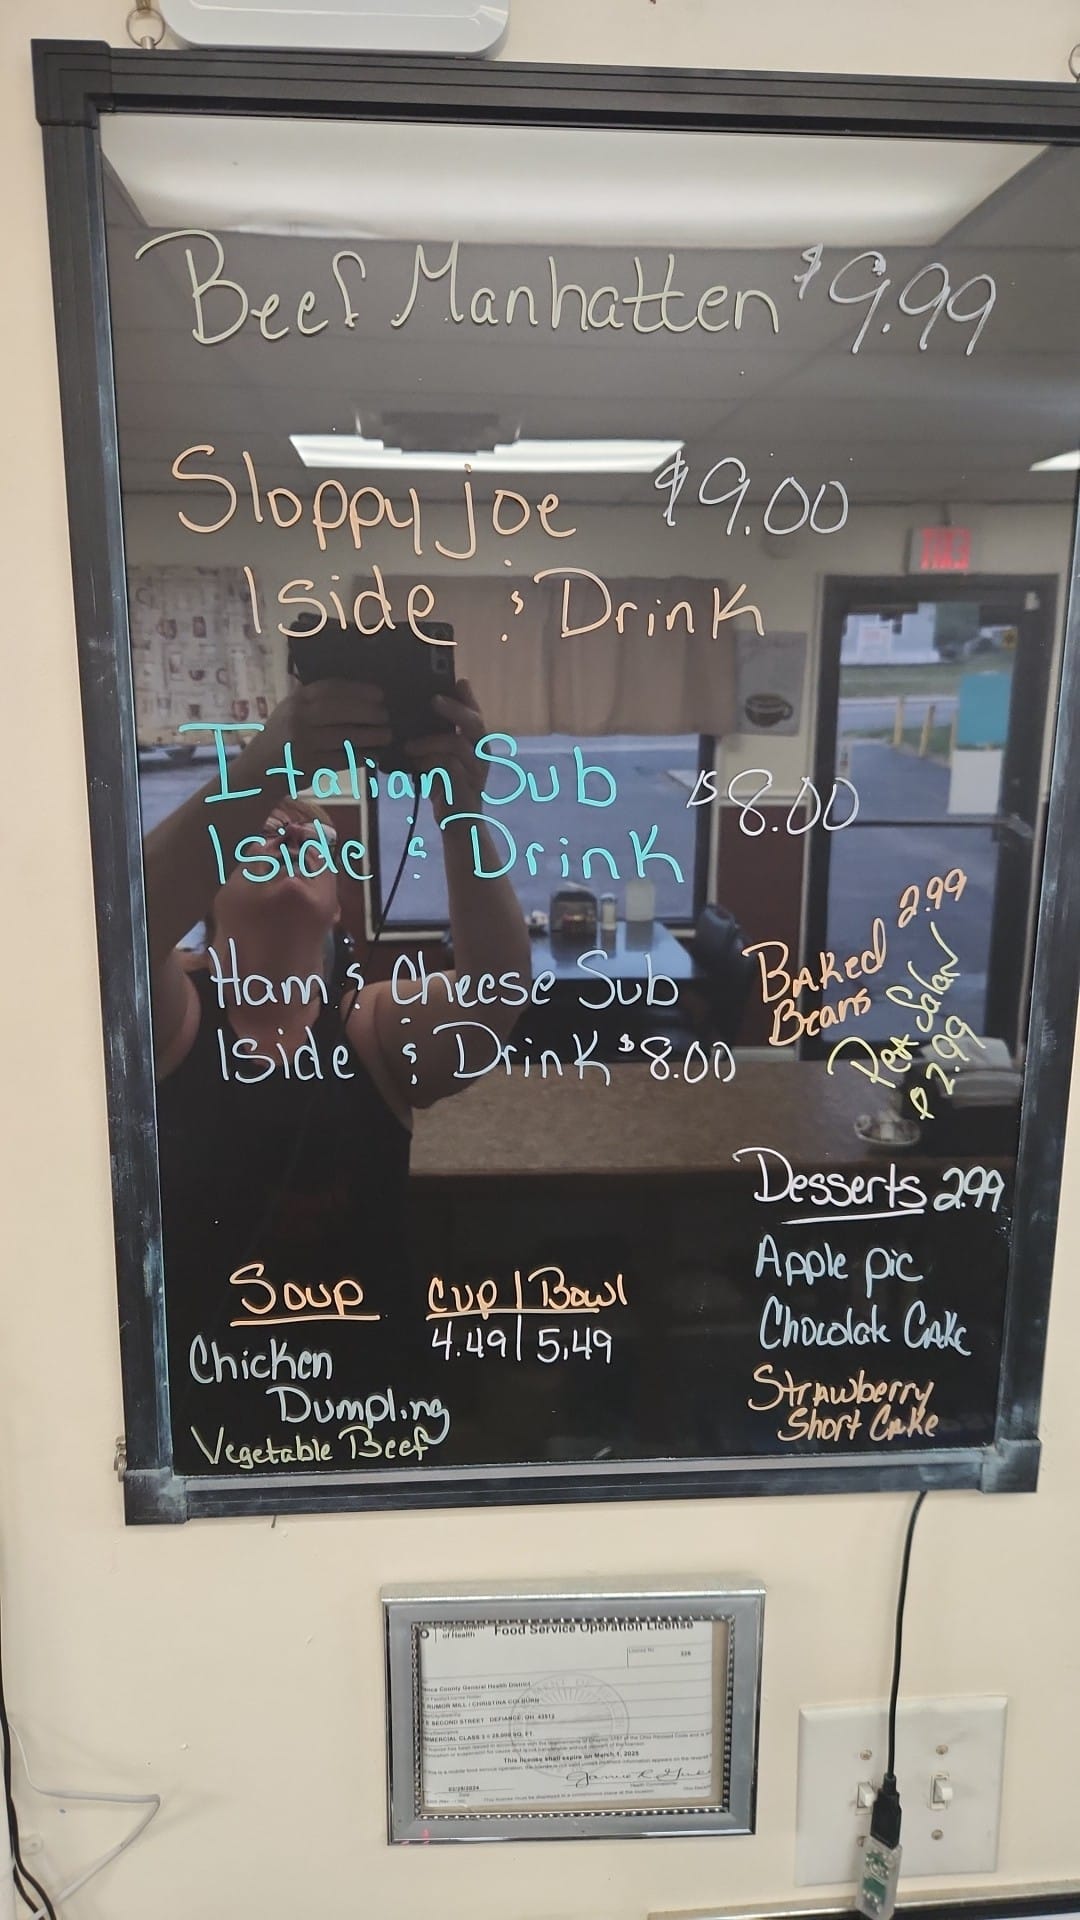 Beef Manhatten $9.99
Sloppy joe $9.00
1 side & Drink
Italian Sub $8.00
1 side & Drink
Ham & Cheese Sub
1 side & Drink $8.00
Baked 2.99
Beans
Pea Salad
$2.99
Desserts 2.99
Apple pie
Chocolate Cake
Strawberry
Short Cake
Soup Cup | Bowl
4.49 | 5.49
Chicken
Dumpling
Vegetable Beef
EXIT
of Health
Food Service Operation License
County General Health District
RUMOR MILL / CHRISTINA COLBURN
SECOND STREET DEFIANCE, OH 43512
This license shall expire on March 1, 2025